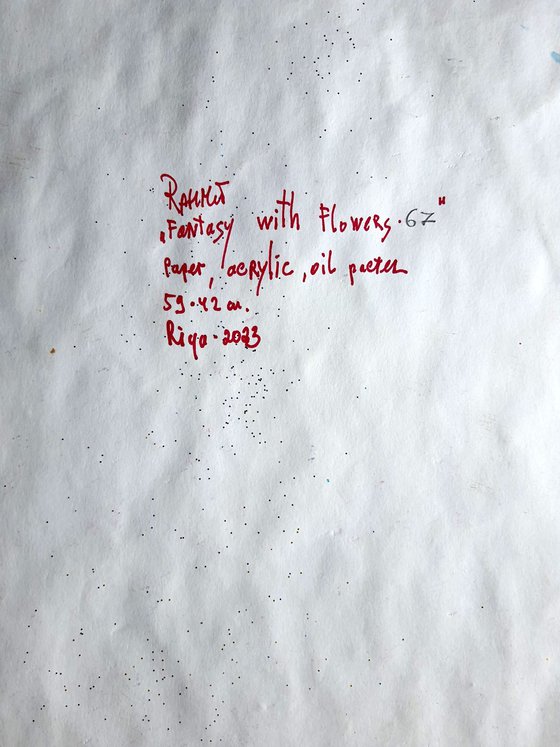 „Fantasy with Flowers. 67"
Paper, acrylic, oil pastel
59.42 cm.
Riga. 2023